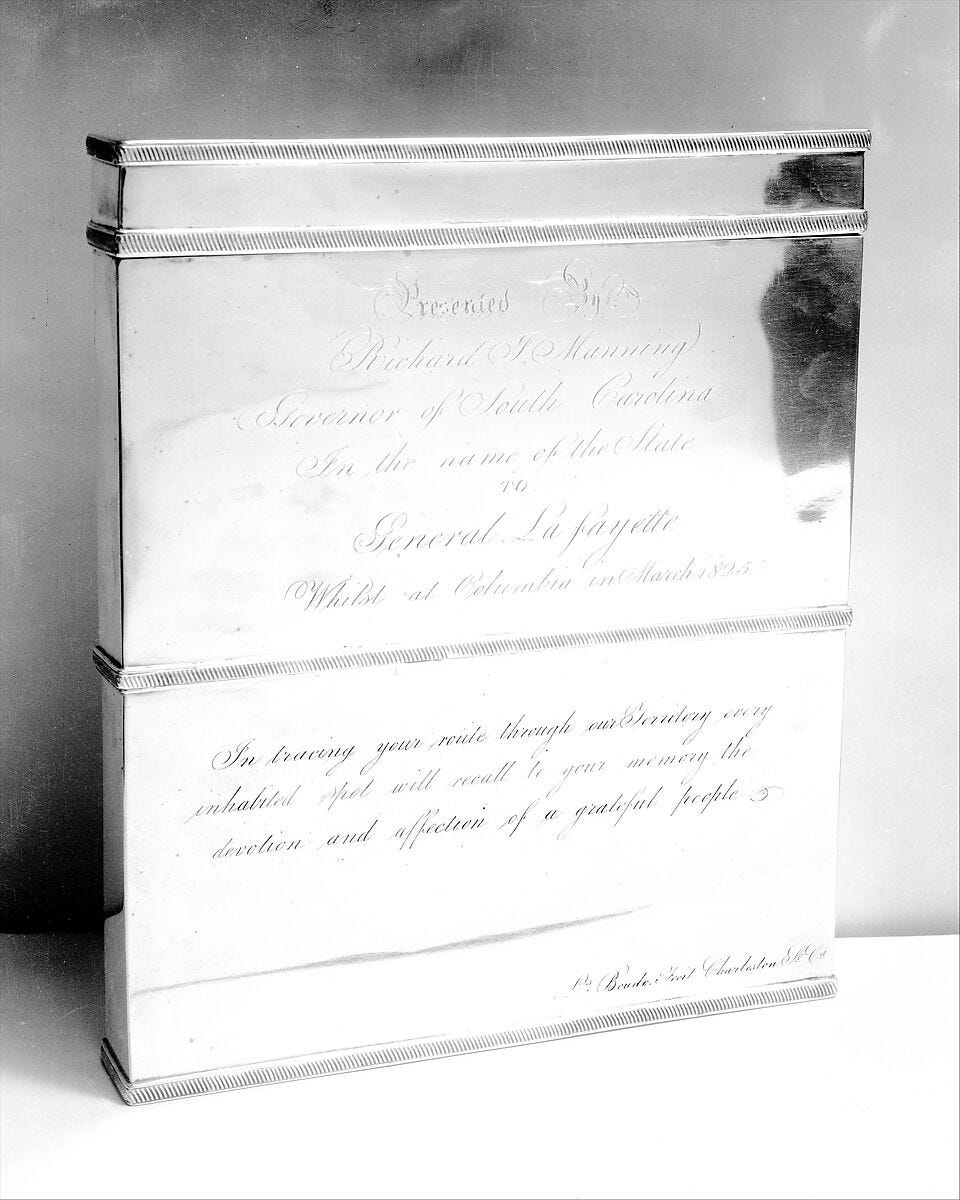 Presented By
Richard I. Manning
Governor of South Carolina
In the name of the State
TO
General La fayette
Whilst at Columbia in March 1825
In tracing your route through our Territory every
inhabited spot will recall to your memory the
devotion and affection of a grateful people
Ls. Boudo. Fecit Charleston So. Ca